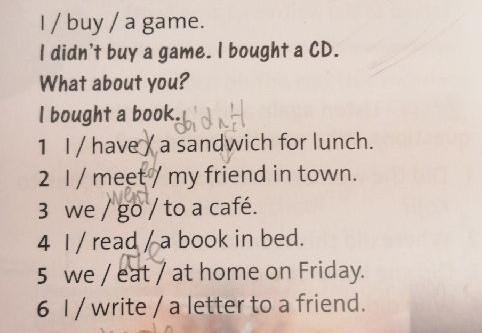 I / buy / a game.
I didn't buy a game. I bought a CD.
What about you?
I bought a book.
didn't
1 I / have / a sandwich for lunch.
2 I / meet / my friend in town.
went
3 we / go / to a café.
4 I / read / a book in bed.
ate
5 we / eat / at home on Friday.
6 I / write / a letter to a friend.